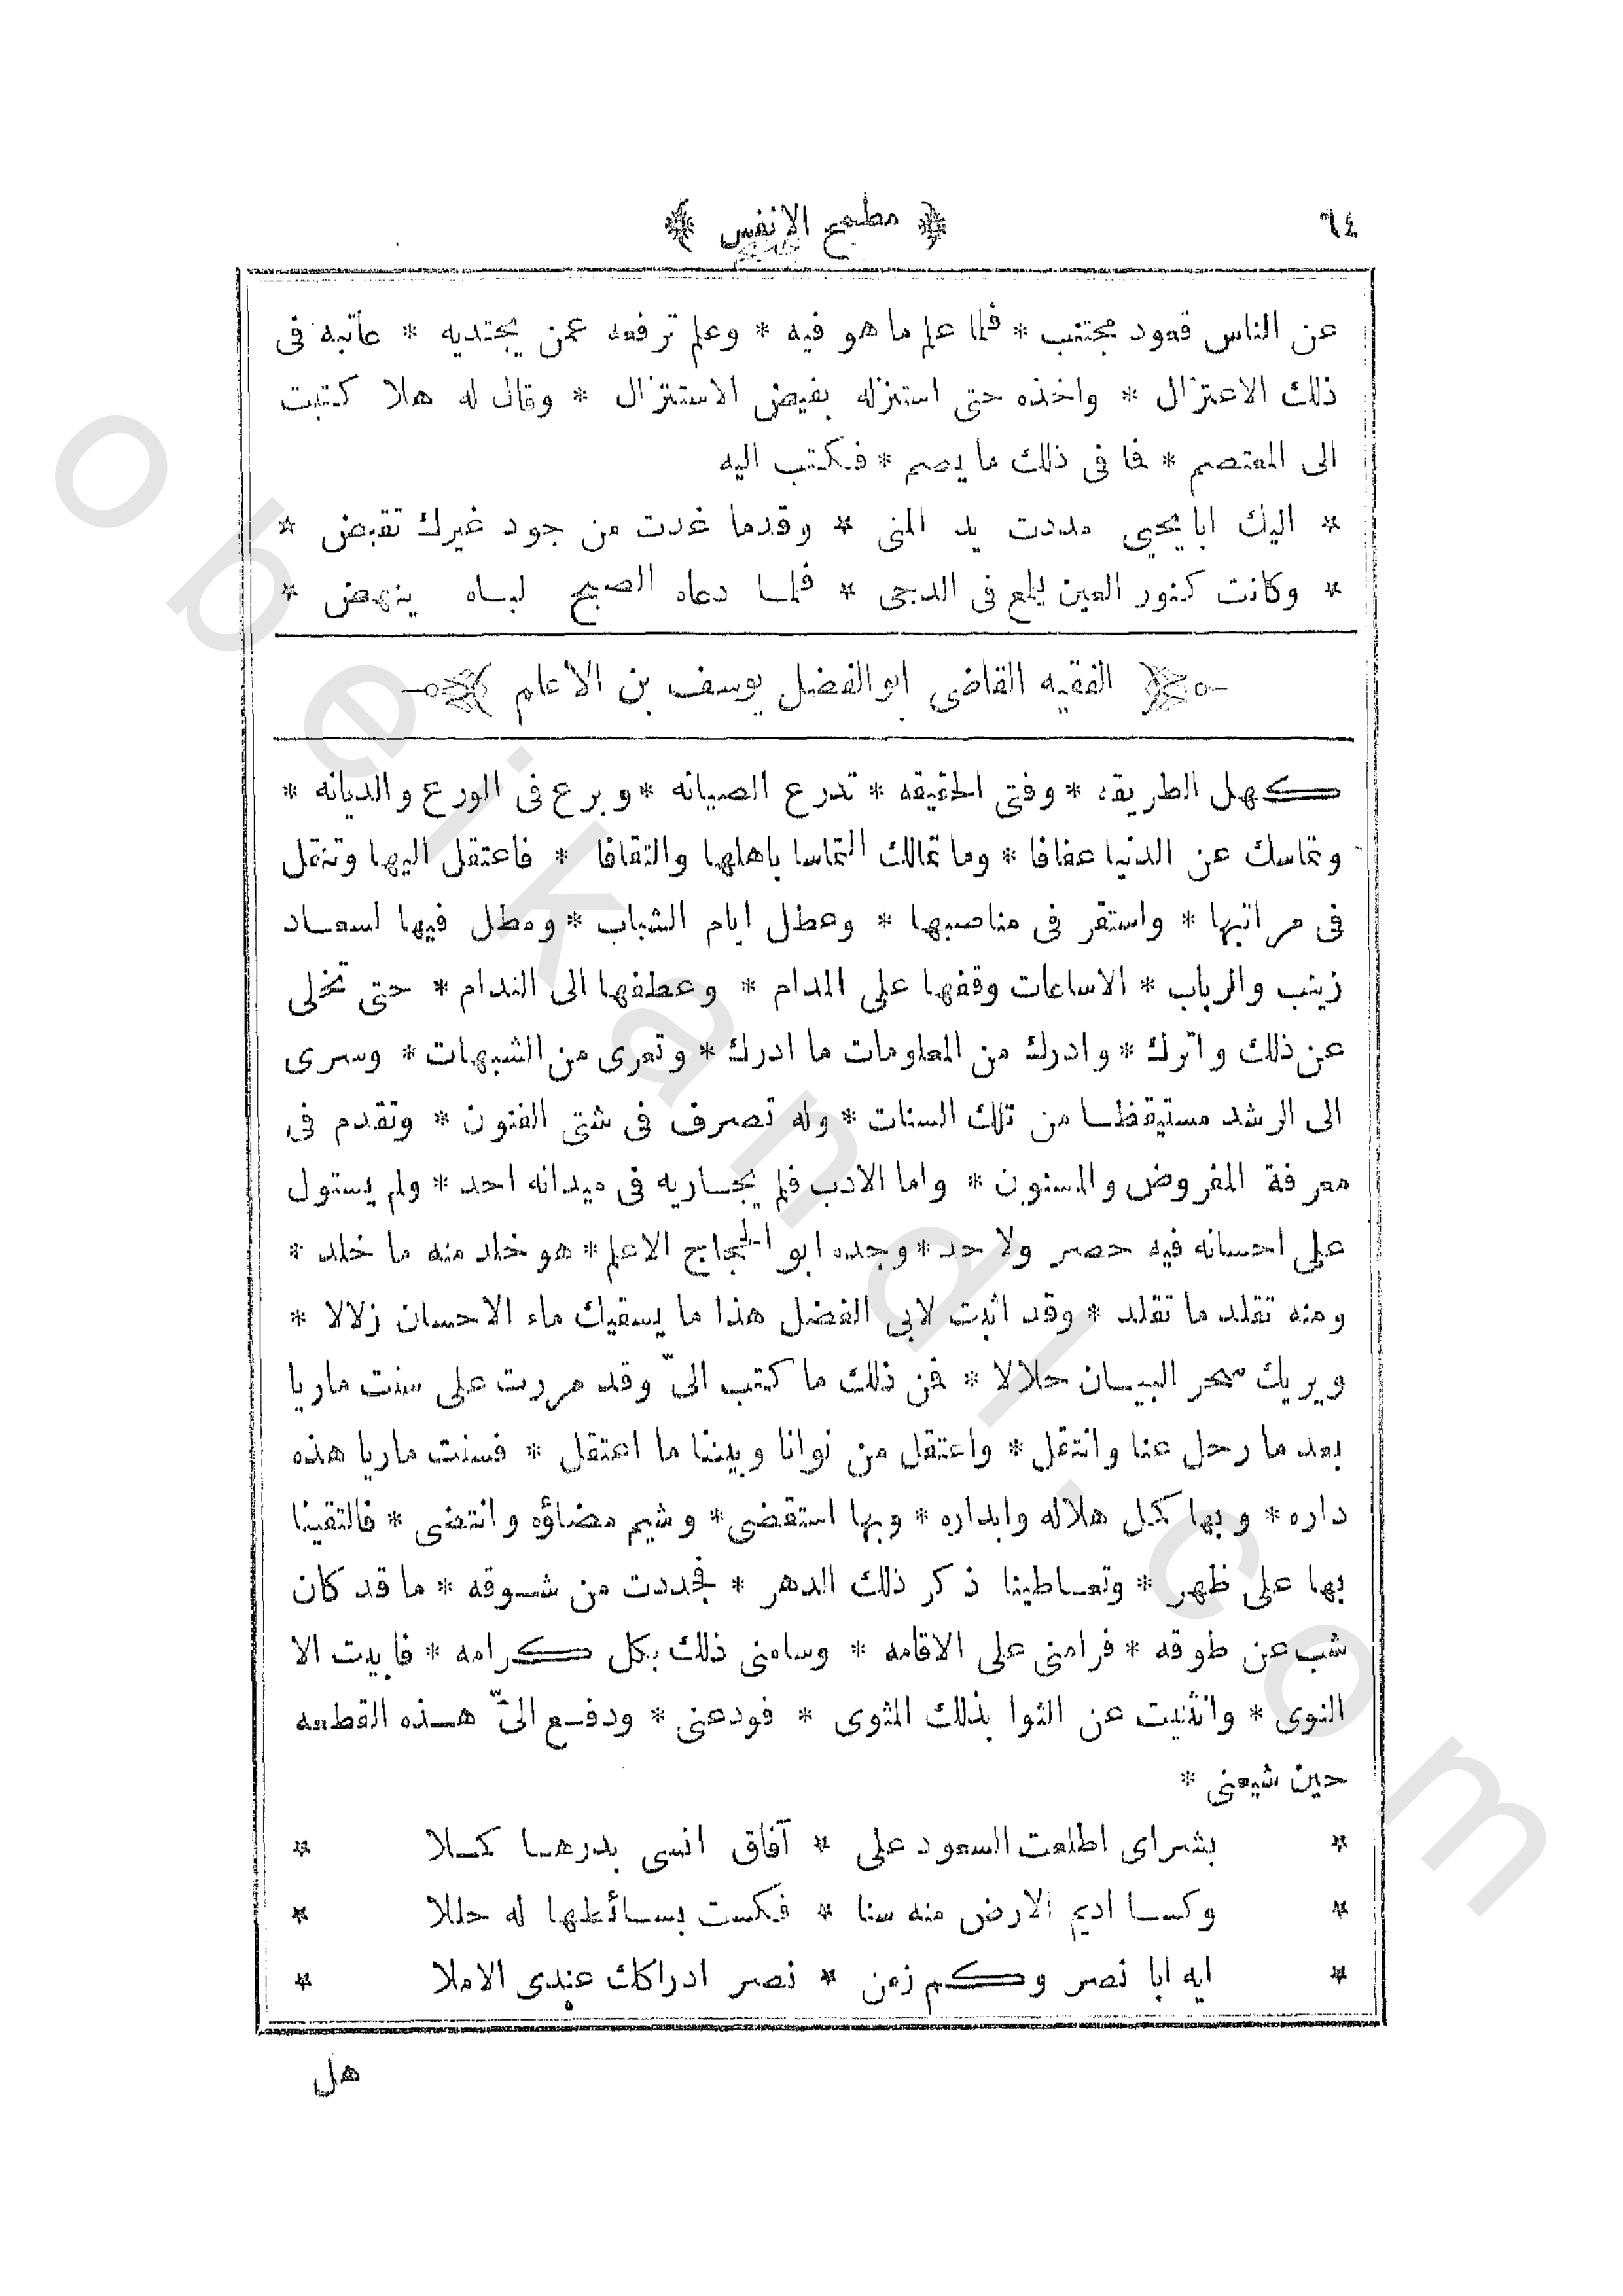 ٦٤
﴿ مطمح الانفس ﴾
عن الناس قعود مجتنب * فلما علم ما هو فيه * وعلم ترفعه عمن يجتديه * عاتبه فى
ذلك الاعتزال * واخذه حتى استنزله بفيض الاستنزال * وقال له هلا كتبت
الى المعتصم * فما فى ذلك ما يصم * فكتب اليه
* اليك ابا يحيى مددت يد المنى * وقدما غدت من جود غيرك تقبض *
* وكانت كنور العين يلمع فى الدجى * فلما دعاه الصبح لباه ينهض *
الفقيه القاضى ابو الفضل يوسف بن الاعلم
كهل الطريقه * وفتى الحقيقه * تدرع الصيانه * وبرع فى الورع والديانه *
وتماسك عن الدنيا عفافا * وما تمالك التماسا باهلها والتفافا * فاعتقل اليها وتنقل
فى مراتبها * واستقر فى مناصبها * وعطل ايام الشباب * ومطل فيها لسعاد
زينب والرباب * الاساعات وقفها على المدام * وعطفها الى الندام * حتى تخلى
عن ذلك واترك * وادرك من المعلومات ما ادرك * وتعرى من الشبهات * وسرى
الى الرشد مستيقظا من تلك السنات * وله تصرف فى شتى الفنون * وتقدم فى
معرفة المفروض والمسنون * واما الادب فلم يجاريه فى ميدانه احد * ولم يستول
على احسانه فيه حصر ولا حد * وجده ابو الحجاج الاعلم * هو خلد منه ما خلد *
ومنه تقلد ما تقلد * وقد اثبت لابى الفضل هذا ما يسقيك ماء الاحسان زلالا *
ويريك سحر البيان حلالا * فمن ذلك ما كتب الىّ وقد مررت على سنت ماريا
بعد ما رحل عنا وانتقل * واعتقل من نوانا وبيننا ما اعتقل * فسنت ماريا هذه
داره * وبها كمل هلاله وابداره * وبها استقضى * وشيم مضاؤه وانتضى * فالتقينا
بها على ظهر * وتعاطينا ذكر ذلك الدهر * فجددت من شوقه * ما قد كان
شب عن طوقه * فرامنى على الاقامه * وسامنى ذلك بكل كرامه * فابيت الا
النوى * وانثنيت عن الثوا بذلك المثوى * فودعنى * ودفع الىّ هذه القطعه
حين شيعنى *
* بشراى اطلعت السعود على * آفاق انسى بدرها كملا *
* وكسا اديم الارض منه سنا * فكست بسائطها له حللا *
* ايه ابا نصر وكم زمن * نصر ادراكك عندى الاملا *
هل
obeikandl.com